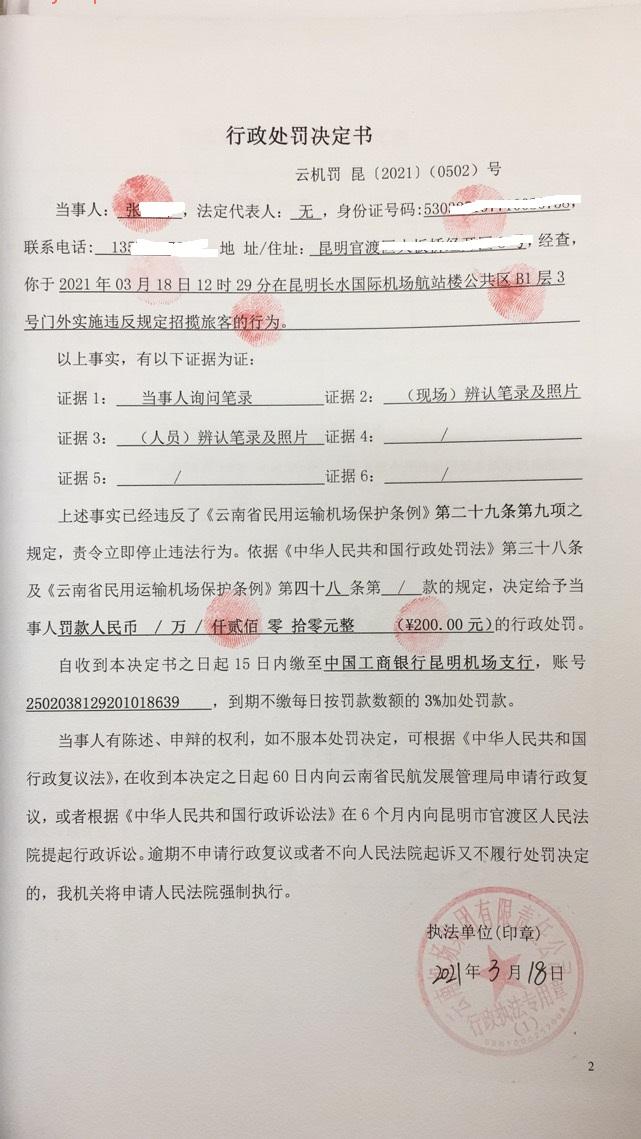 行政处罚决定书
云机罚 昆〔2021〕（0502）号
当事人：张 ，法定代表人：无，身份证号码:
联系电话: 135 地 址/住址：昆明官渡 ，经查，
你于 2021 年 03 月 18 日 12 时 29 分在昆明长水国际机场航站楼公共区 B1 层 3
号门外实施违反规定招揽旅客的行为。
以上事实，有以下证据为证：
证据 1： 当事人询问笔录 证据 2： （现场）辨认笔录及照片
证据 3： （人员）辨认笔录及照片 证据 4： /
证据 5： / 证据 6： /
上述事实已经违反了《云南省民用运输机场保护条例》第二十九条第九项之
规定，责令立即停止违法行为。依据《中华人民共和国行政处罚法》第三十八条
及《云南省民用运输机场保护条例》第四十八 条第 / 款的规定，决定给予当
事人罚款人民币 / 万 / 仟贰佰 零 拾零元整 （¥200.00 元）的行政处罚。
自收到本决定书之日起 15 日内缴至中国工商银行昆明机场支行，账号
2502038129201018639 ，到期不缴每日按罚款数额的 3%加处罚款。
当事人有陈述、申辩的权利，如不服本处罚决定，可根据《中华人民共和国
行政复议法》，在收到本决定之日起 60 日内向云南省民航发展管理局申请行政复
议，或者根据《中华人民共和国行政诉讼法》在 6 个月内向昆明市官渡区人民法
院提起行政诉讼。逾期不申请行政复议或者不向人民法院起诉又不履行处罚决定
的，我机关将申请人民法院强制执行。
执法单位(印章)
2021年 3 月 18日
云南机场集团有限责任公司
行政执法专用章
(1)
2